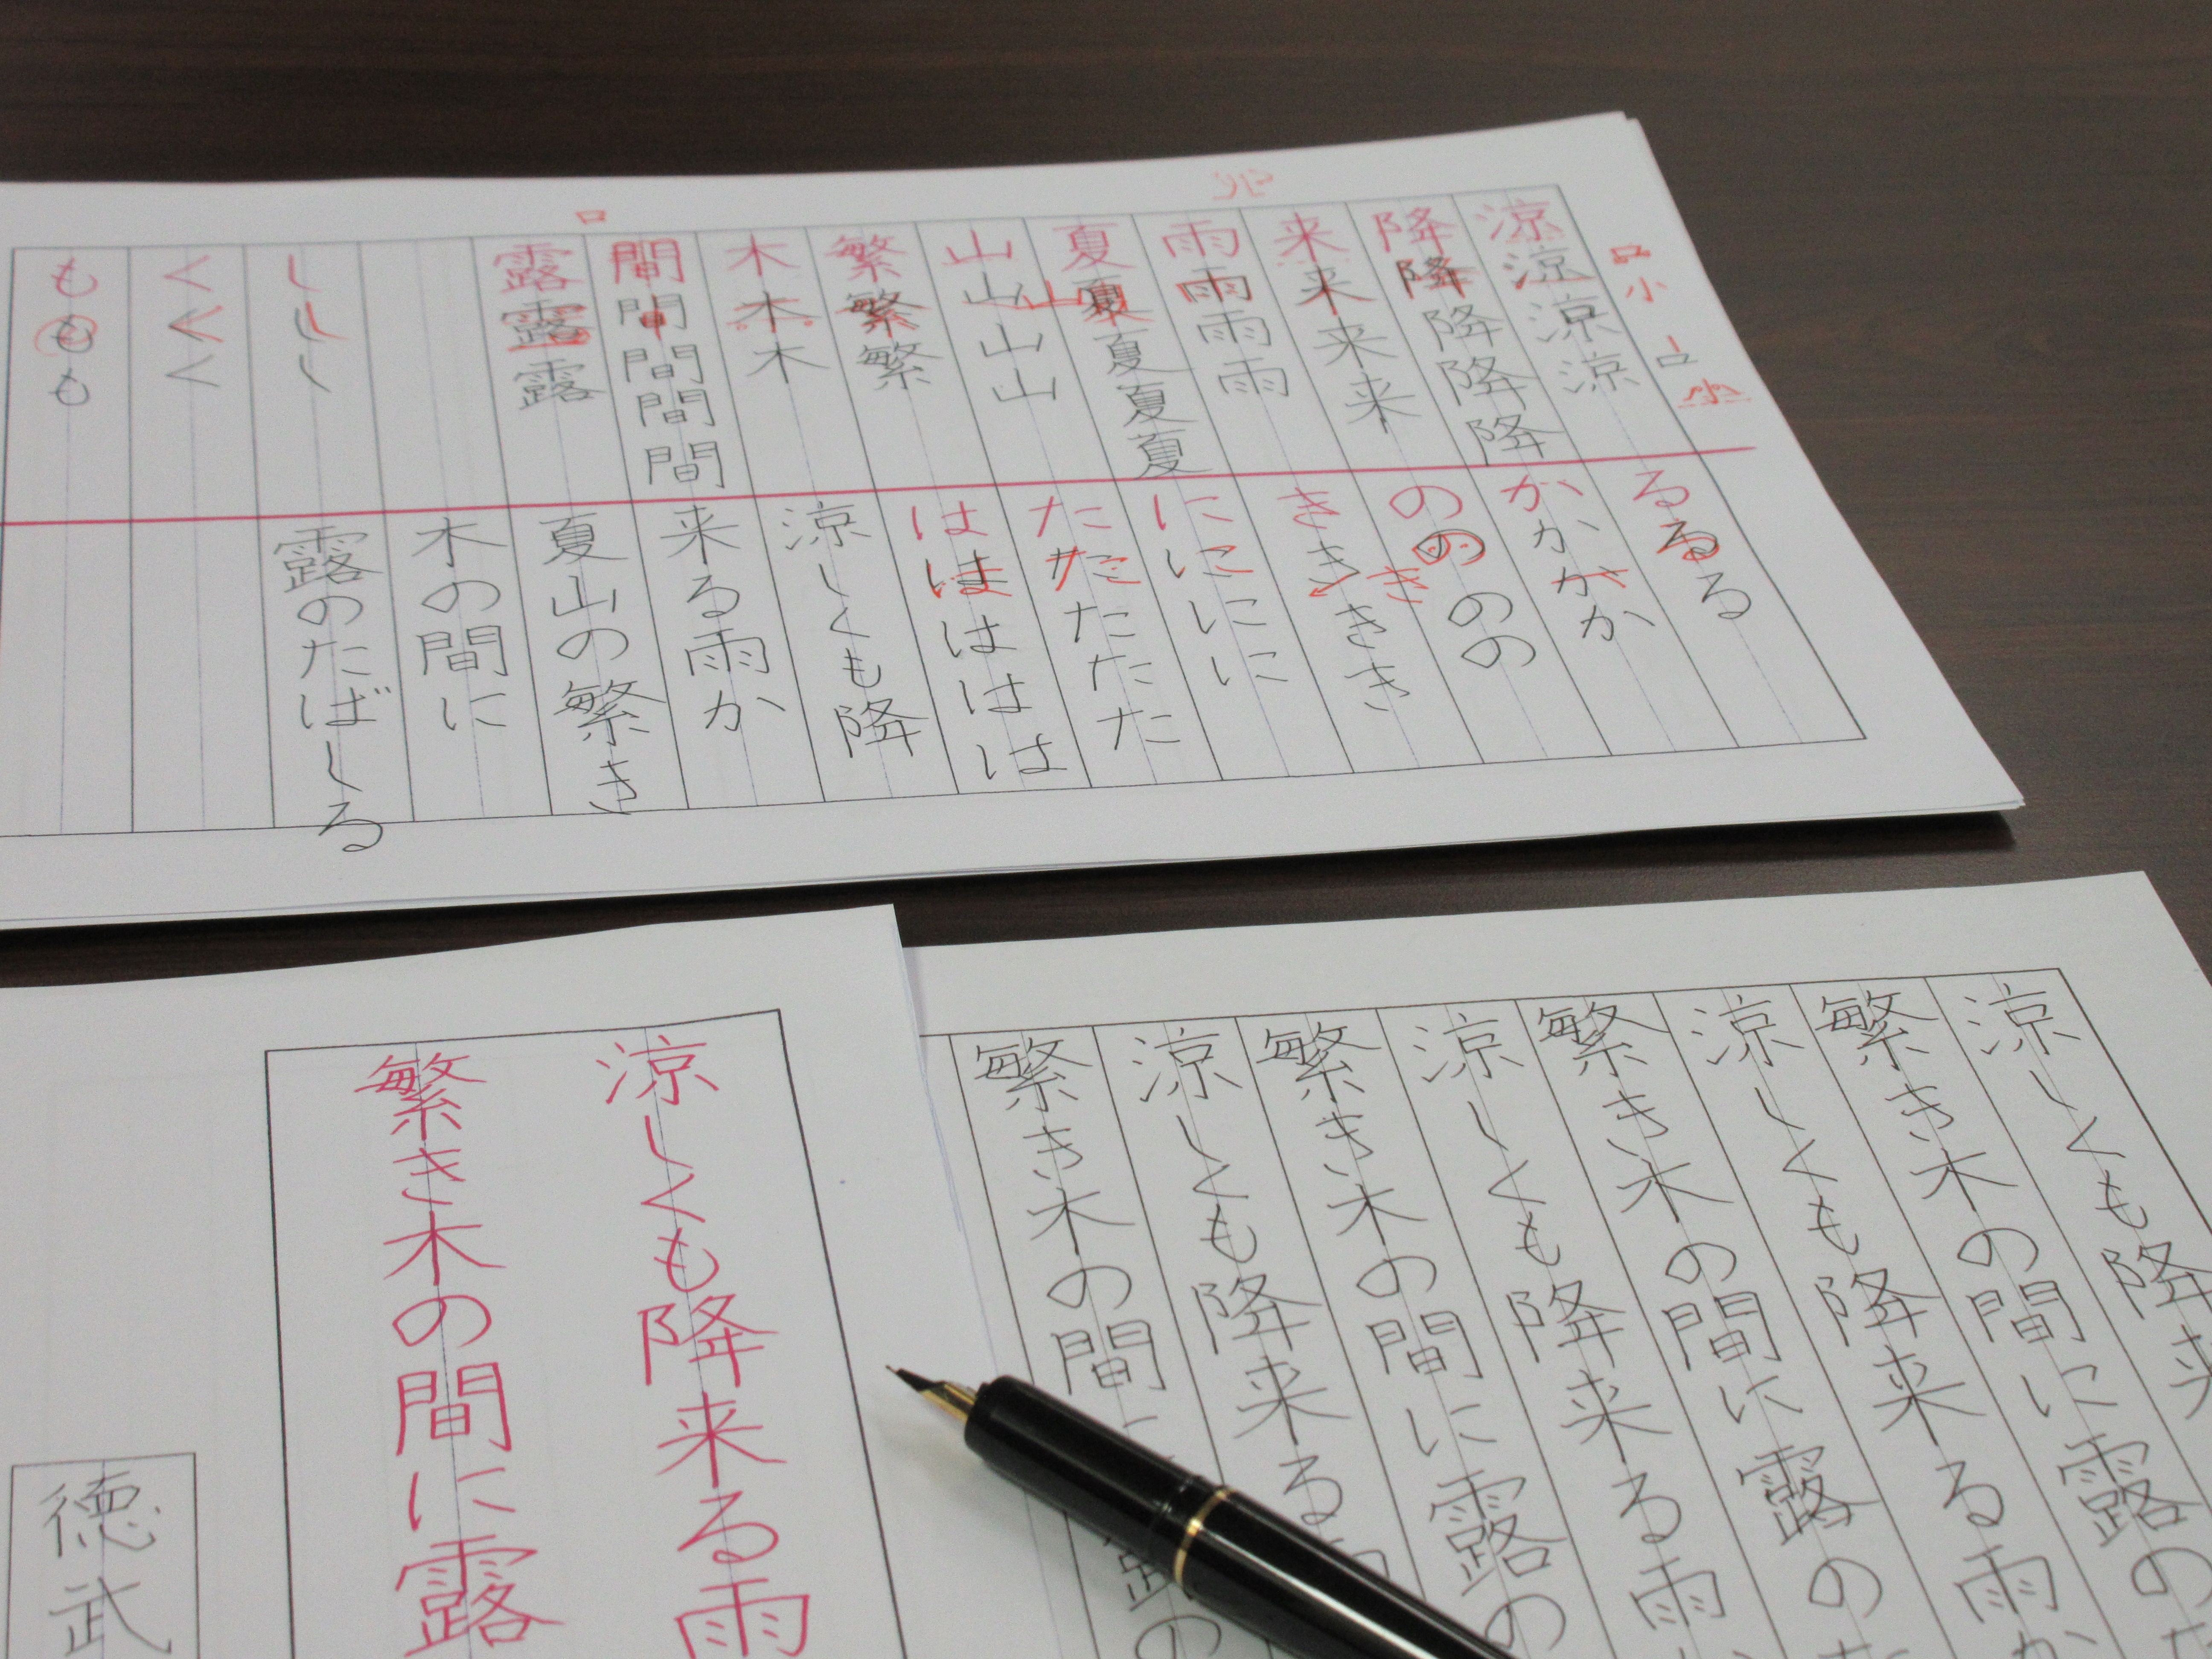 涼涼涼涼
降降降降降
来来来来
雨雨雨雨
夏夏夏夏夏
山山山山
繁繁繁
木木木
間間間間間
露露露
ししし
くくく
ももも
るるる
かかかか
のののの
きききき
にににに
たたたたた
ははははは
涼しくも降
来る雨か
夏山の繁き
木の間に
露のたばしる
涼しくも降来る雨
繁き木の間に露
徳武
涼しくも降来
繁き木の間に露の
涼しくも降来る雨
繁き木の間に露の
涼しくも降来る雨
繁き木の間に露の
涼しくも降来る
繁き木の間